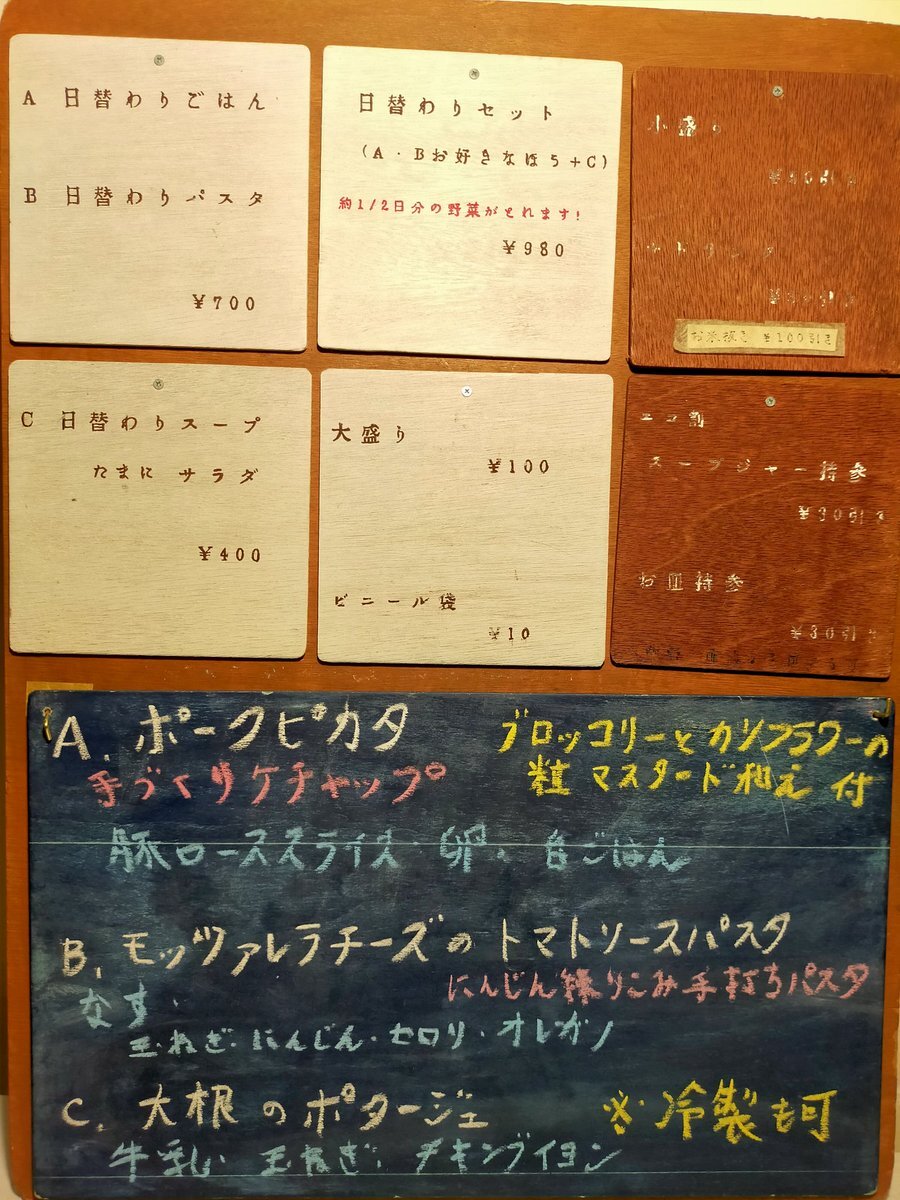 A 日替わりごはん
B 日替わりパスタ
¥700
日替わりセット
(A・Bお好きなほう+C)
約1/2日分の野菜がとれます!
¥980
小盛り
お米抜き ¥100引き
C 日替わりスープ
たまに サラダ
¥400
大盛り
¥100
ビニール袋
¥10
エコ割
スープジャー持参
¥30引き
お皿持参
¥30引き
A. ポークピカタ
手づくりケチャップ
ブロッコリーとカリフラワーの
粒マスタード和え 付
豚ローススライス・卵・白ごはん
B. モッツァレラチーズのトマトソースパスタ
にんじん練りこみ手打ちパスタ
なす・
玉ねぎ・にんじん・セロリ・オレガノ
C. 大根のポタージュ
※冷製も可
牛乳・玉ねぎ・チキンブイヨン